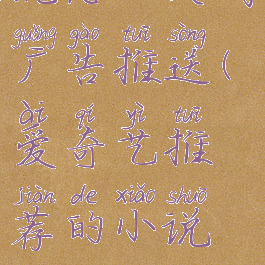 guǎng gào tuī sòng
广告推送(
ài qí yì tuī
爱奇艺推
jiàn de xiǎo shuō
荐的小说